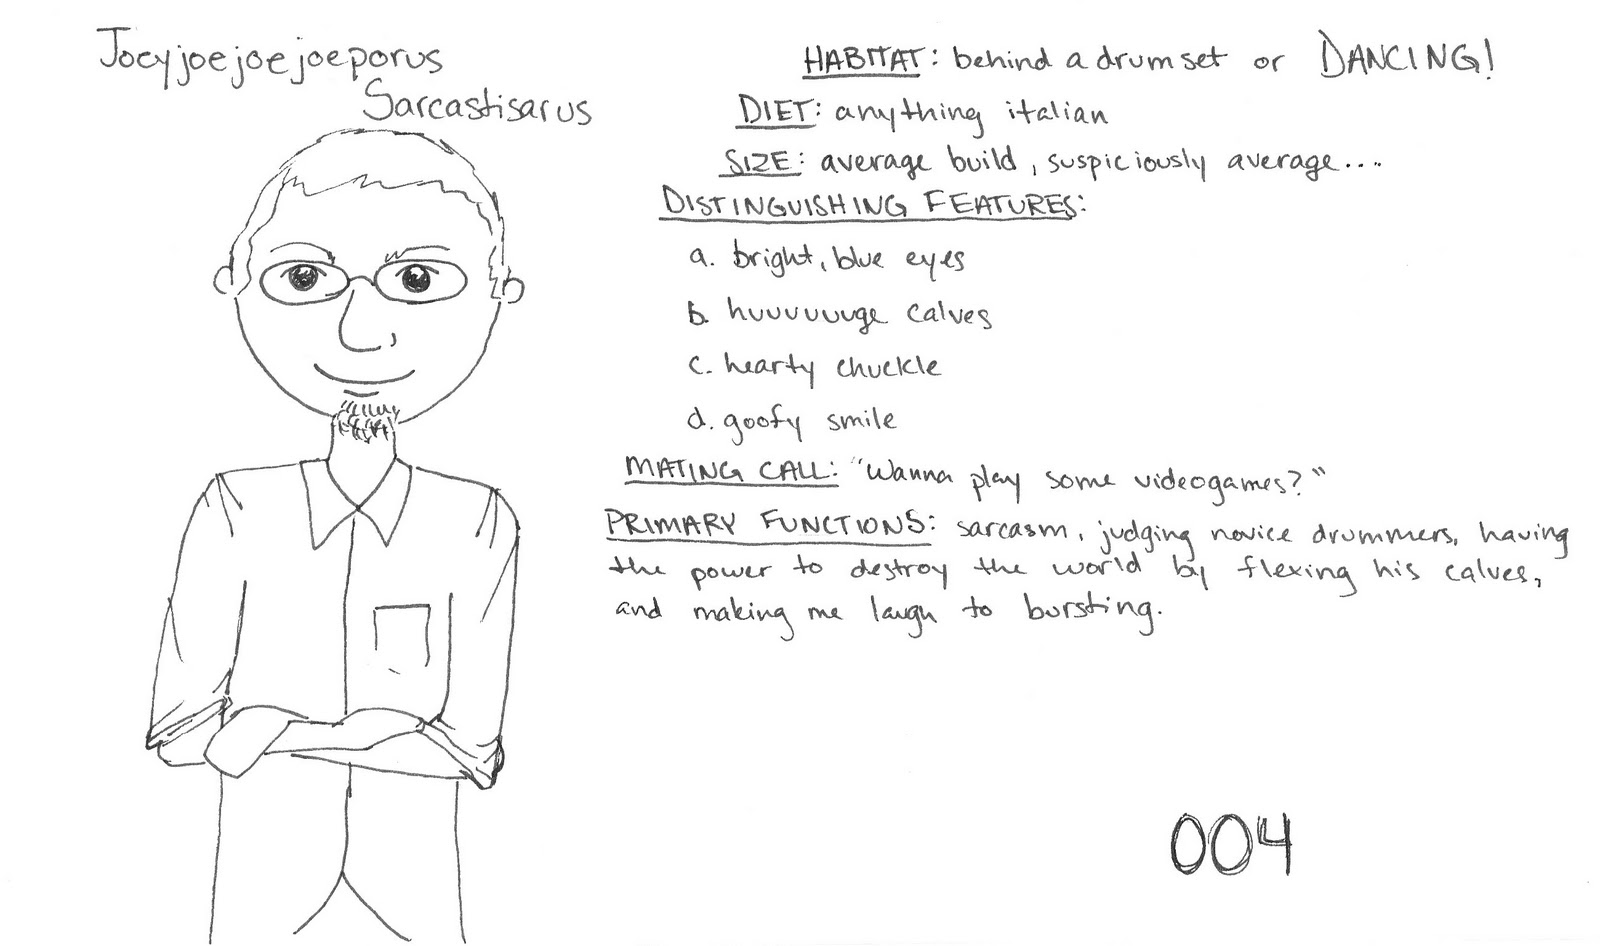 Joeyjoejoejoeporus
Sarcastisarus
HABITAT: behind a drumset or DANCING!
DIET: anything italian
SIZE: average build, suspiciously average....
DISTINGUISHING FEATURES:
a. bright, blue eyes
b. huuuuuuge calves
c. hearty chuckle
d. goofy smile
MATING CALL: "Wanna play some videogames?"
PRIMARY FUNCTIONS: sarcasm, judging novice drummers, having
the power to destroy the world by flexing his calves,
and making me laugh to bursting.
004